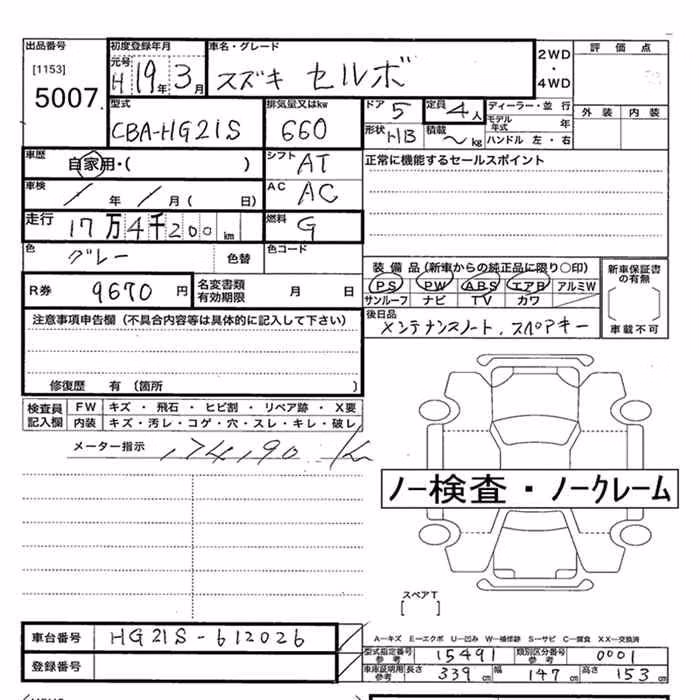 出品番号 初度登録年月 車名・グレード 2WD・4WD 評価点
[1153] 元号 H 19年 3月 スズキ セルボ
5007 型式 排気量又はkw ドア 5 定員 4人 ディーラー・並行 外装 内装
CBA-HG21S 660 形状 HB 積載 〜 kg モデル年式 年
ハンドル 左・右
車歴 自家用・( ) シフト AT 正常に機能するセールスポイント
車検 / 年 / 月( 日) AC AC
走行 17万4千200km 燃料 G
色 グレー 色替 色コード
装備品(新車からの純正品に限り○印) 新車保証書の有無
R券 9670円 名変書類有効期限 月 日 PS PW ABS エアB アルミW
サンルーフ ナビ TV カワ
注意事項申告欄(不具合内容等は具体的に記入して下さい) 後日品 車載不可
メンテナンスノート、スペアキー
修復歴 有 〔箇所 〕
検査員記入欄 FW キズ・飛石・ヒビ割・リペア跡・X要
内装 キズ・汚レ・コゲ・穴・スレ・キレ・破レ
メーター指示 174,190 k
ノー検査・ノークレーム
スペアT
[ ]
車台番号 HG21S-612026
A−キズ E−エクボ U−凹み W−補修跡 S−サビ C−腐食 XX−交換済
型式指定番号参考 15491 類別区分番号参考 0001
登録番号 車庫証明用参考 長さ 339cm 幅 147cm 高さ 153cm